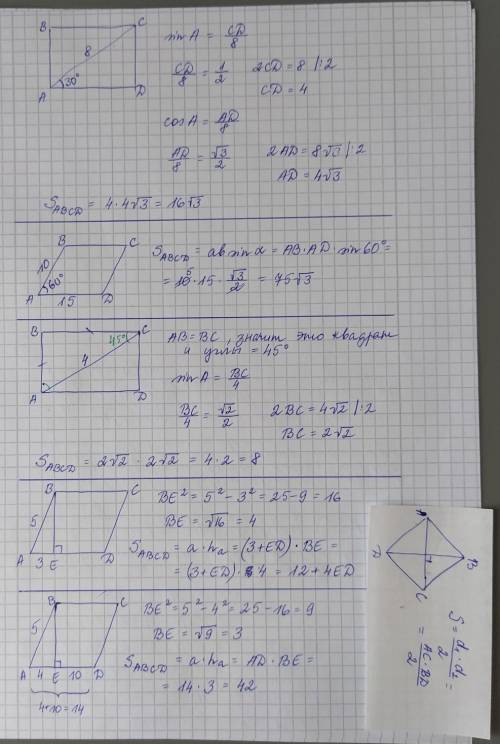 B C
8
30°
A D
sin A = CD/8
CD/8 = 1/2   2CD = 8 |:2
CD = 4
cos A = AD/8
AD/8 = √3/2   2AD = 8√3 |:2
AD = 4√3
S_ABCD = 4·4√3 = 16√3
B C
10
60°
A 15 D
S_ABCD = ab sin α = AB·AD·sin 60° =
= 10 5·15·√3/2 = 75√3
B C
45°
4
A D
AB = BC, значит это квадрат
и углы = 45°
sin A = BC/4
BC/4 = √2/2   2BC = 4√2 |:2
BC = 2√2
S_ABCD = 2√2 · 2√2 = 4·2 = 8
B C
5
A 3 E D
BE² = 5² - 3² = 25 - 9 = 16
BE = √16 = 4
S_ABCD = a·hₐ = (3+ED)·BE =
= (3+ED)·4 = 12 + 4ED
B C
5
A 4 E 10 D
4+10=14
BE² = 5² - 4² = 25 - 16 = 9
BE = √9 = 3
S_ABCD = a·hₐ = AD·BE =
= 14·3 = 42
A
B
C
D
S = d₁·d₂/2 =
= AC·BD/2